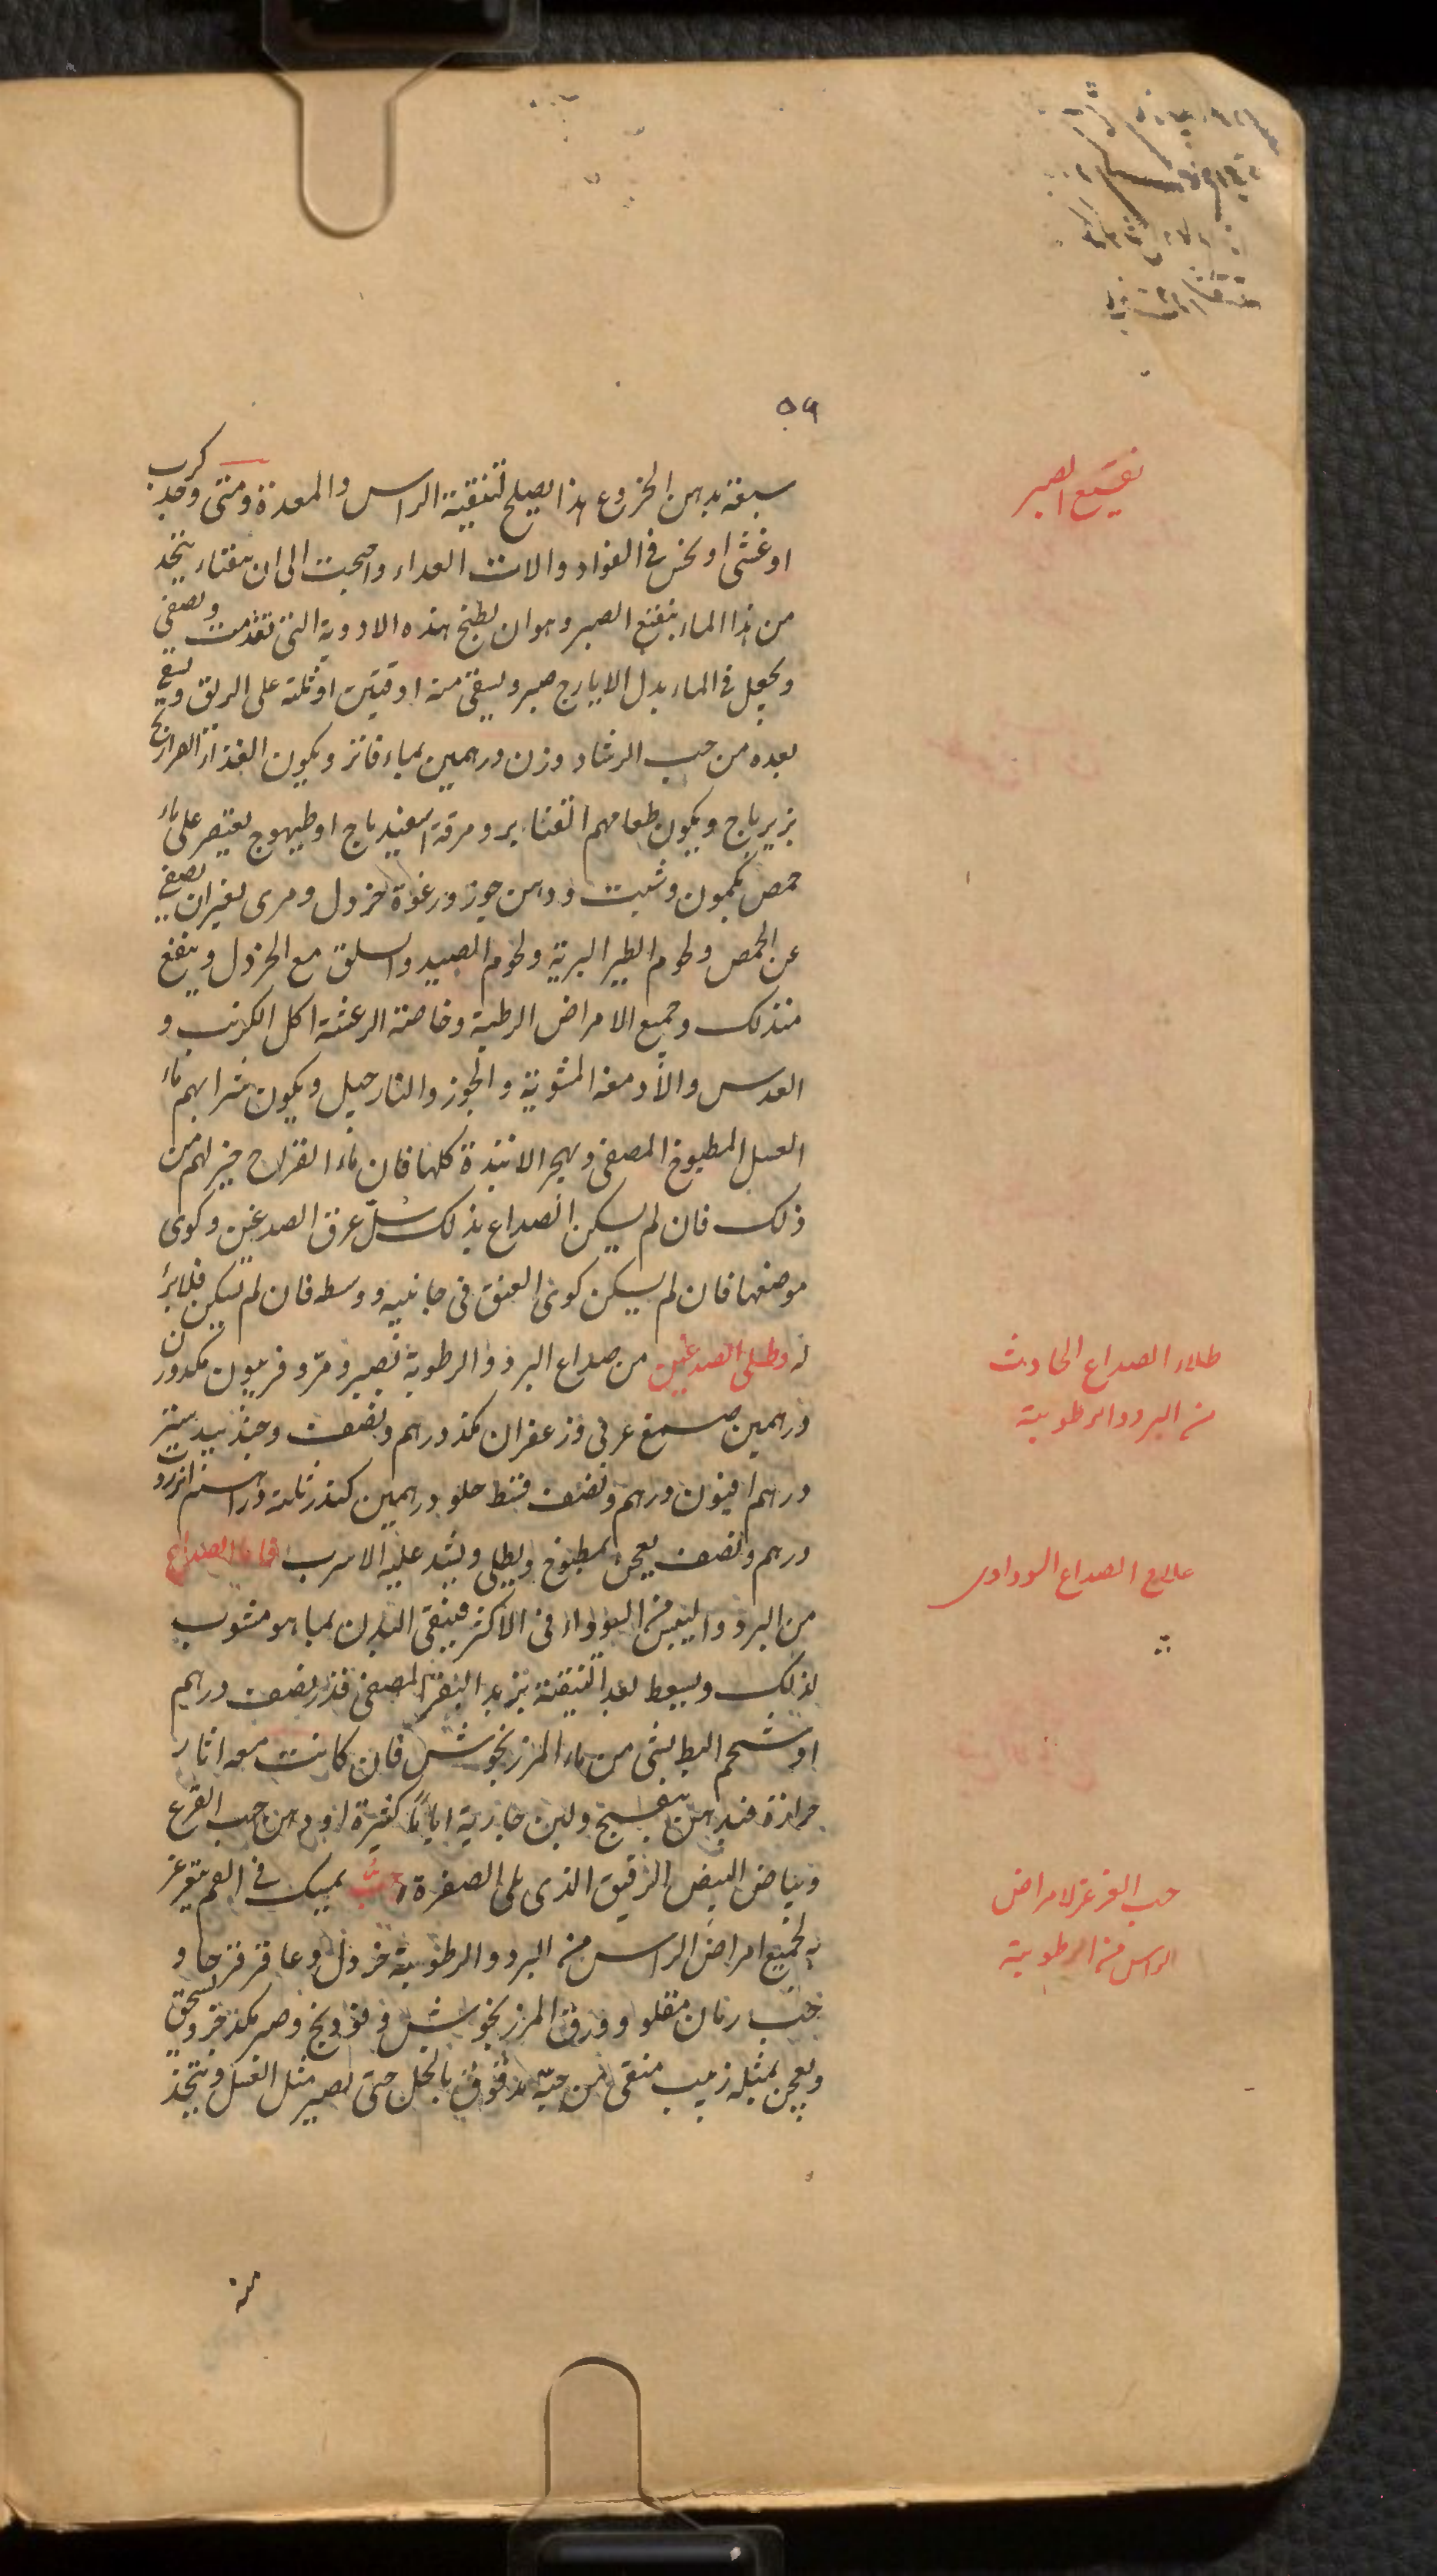 ٥٩
نقيع الصبر
سبعة بدهن الخروع هذا يصلح لتنقية الراس والمعدة ومتى وجد كرب
او غثى او نخس فى الفواد والات الغداء واحجت الى ان يتخذ
من هذا الماء بنقيع الصبر وهو ان يطبخ هذه الادوية التى تقدمت ويصفى
ويجعل فى الماء بدل الايارج صبر ويسقى منه اوقيتين او ثلثة على الريق ويسقى
بعده من حب الرشاد وزن درهمين بماء فاتر ويكون الغذاء الفراريج
بزيرباج ويكون طعامهم القنابر ومرقة اسفيدباج او طيهوج يقتصر على ماء
حمص بكمون وشبت ودهن جوز ورغوة خردل ومرى بغير ان يصفى
عن الحمص ولحوم الطير البرية ولحوم الصيد والسلق مع الخردل وينفع
منذلك وجميع الامراض الرطبة وخاصة الرعشة اكل الكرنب و
العدس والأدمغة المشوية والجوز والنارجيل ويكون شرابهم ماء
العسل المطبوخ المصفى ويهجر الانبذة كلها فان ماء القراح خير لهم من
ذلك فان لم يسكن الصداع بذلك سُلّ عرق الصدغين وكوى
موضعها فان لم يسكن كوى العنق فى جانبيه ووسطه فان لم يسكن فلا برأ
له وطلى الصدغين من صداع البرد والرطوبة بصبر ومرّ وفربيون مكدور ن
طلاء الصداع الحادث
من البرد والرطوبية
درهمين صمغ عربى وزعفران مكد درهم ونصف وجندبيدستر
درهم افيون درهم ونصف قسط حلو درهمين كندر ثلثة دراهم انزروت
درهم ونصف يعجن بمطبوخ ويطلى ويشد عليه الاسرب فاما الصداع
علاج الصداع السوداوى
من البرد واليبس من السوداء فى الاكثر فينقى البدن بما هو منسوب
لذلك ويسعط بعد التنقية بزبد البقر المصفى قدر نصف درهم
او شحم البط بشى من ماء المرزنجوش فان كانت معه اثار
حرارة فبدهن بنفسج ولبن جارية اياما كثيرة او دهن حب القرع
وبياض البيض الرقيق الذى يلى الصفرة حب يمسك فى الفم يتغرغر
حب الغرغرة لامراض
الراس من الرطوبية
به لجميع امراض الراس من البرد والرطوبية خردل وعاقرقرحا و
حب رمان مقلو وورق المرزنجوش وفودنج وصبر مكد جزو يسحق
ويعجن بمثله زبيب منقى من حبّه مدقوق بالخل حتى يصير مثل العسل ويتخذ
منه